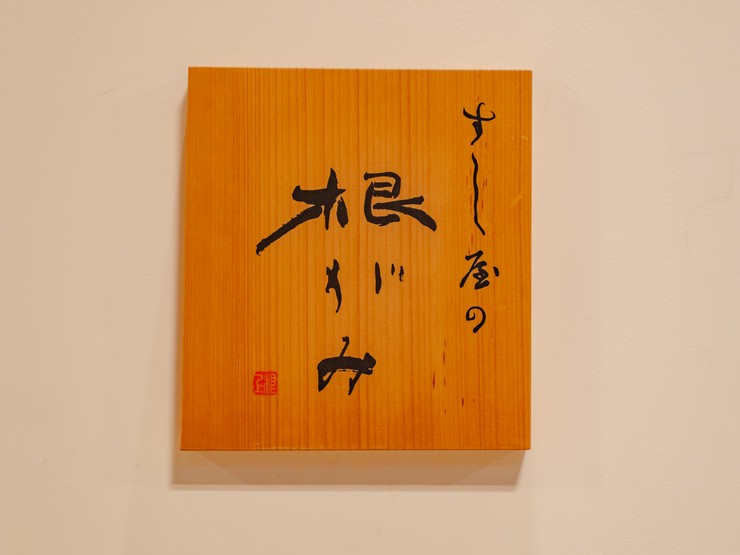 すし屋の
根がみ